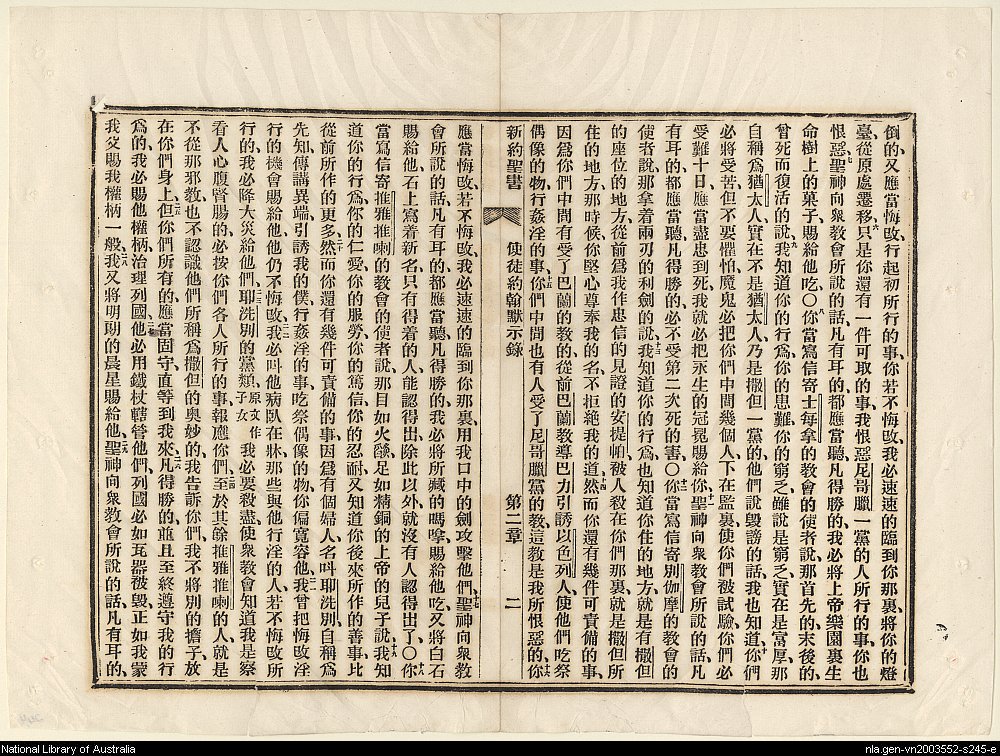 倒的又應當悔改行起初所行的事你若不悔改我必速速的臨到你那裏將你的燈
臺從原處遷移只是你還有一件可取的事我恨惡尼哥臘一黨的人所行的事你也
恨惡聖神向衆教會所說的話凡有耳的都應當聽凡得勝的我必將上帝樂園裏生
命樹上的菓子賜給他吃〇你當寫信寄士每拿的教會的使者說那首先的末後的
曾死而復活的說我知道你的行爲你的患難你的窮乏雖說是窮乏實在是富厚那
自稱爲猶太人實在不是猶太人乃是撒但一黨的他們說毀謗的話我也知道你們
必將受苦但不要懼怕魔鬼必把你們中間幾個人下在監裏使你們被試驗你們必
受難十日應當盡忠到死我就必把永生的冠冕賜給你聖神向衆教會所說的話凡
有耳的都應當聽凡得勝的必不受第二次死的害〇你當寫信寄別伽摩的教會的
使者說那拿着兩刃的利劍的說我知道你的行爲也知道你住的地方就是有撒但
的座位的地方從前爲我作忠信的見證的安提帕被人殺在你們那裏就是撒但所
住的地方那時候你堅心尊奉我的名不拒絕我的道然而你還有幾件可責備的事
因爲你們中間有受了巴蘭的教的從前巴蘭教導巴力引誘以色列人使他們吃祭
偶像的物行姦淫的事你們中間也有人受了尼哥臘黨的教這教是我所恨惡的你
新約聖書 使徒約翰默示錄 第二章 二
應當悔改若不悔改我必速速的臨到你那裏用我口中的劍攻擊他們聖神向衆教
會所說的話凡有耳的都應當聽凡得勝的我必將所藏的嗎嗱賜給他吃又將白石
賜給他石上寫着新名只有得着的人能認得出除此以外就沒有人認得出了〇你
當寫信寄推雅推喇的教會的使者說那目如火燄足如精銅的上帝的兒子說我知
道你的行爲你的仁愛你的服勞你的篤信你的忍耐又知道你後來所作的善事比
從前所作的更多然而你還有幾件可責備的事因爲有個婦人名呌耶洗別自稱爲
先知傳講異端引誘我的僕行姦淫的事吃祭偶像的物你偏寬容他我曾把悔改淫
行的機會賜給他他仍不悔改我必呌他病臥在牀那些與他行淫的人若不悔改所
行的我必降大災給他們耶洗別的黨類原文作子女我必要殺盡使衆教會知道我是察
看人心腹腎腸的必按你們各人所行的事報應你們至於其餘推雅推喇的人就是
不從那邪教也不認識他們所稱爲撒但的奧妙的我告訴你們我不將別的擔子放
在你們身上但你們所有的應當固守直等到我來凡得勝的並且至終遵守我的行
爲的我必賜他權柄治理列國他必用鐵杖轄管他們列國必如瓦器被毀正如我蒙
我父賜我權柄一般我又將明朗的晨星賜給他聖神向衆教會所說的話凡有耳的
National Library of Australia
nla.gen-vn2003552-s245-e